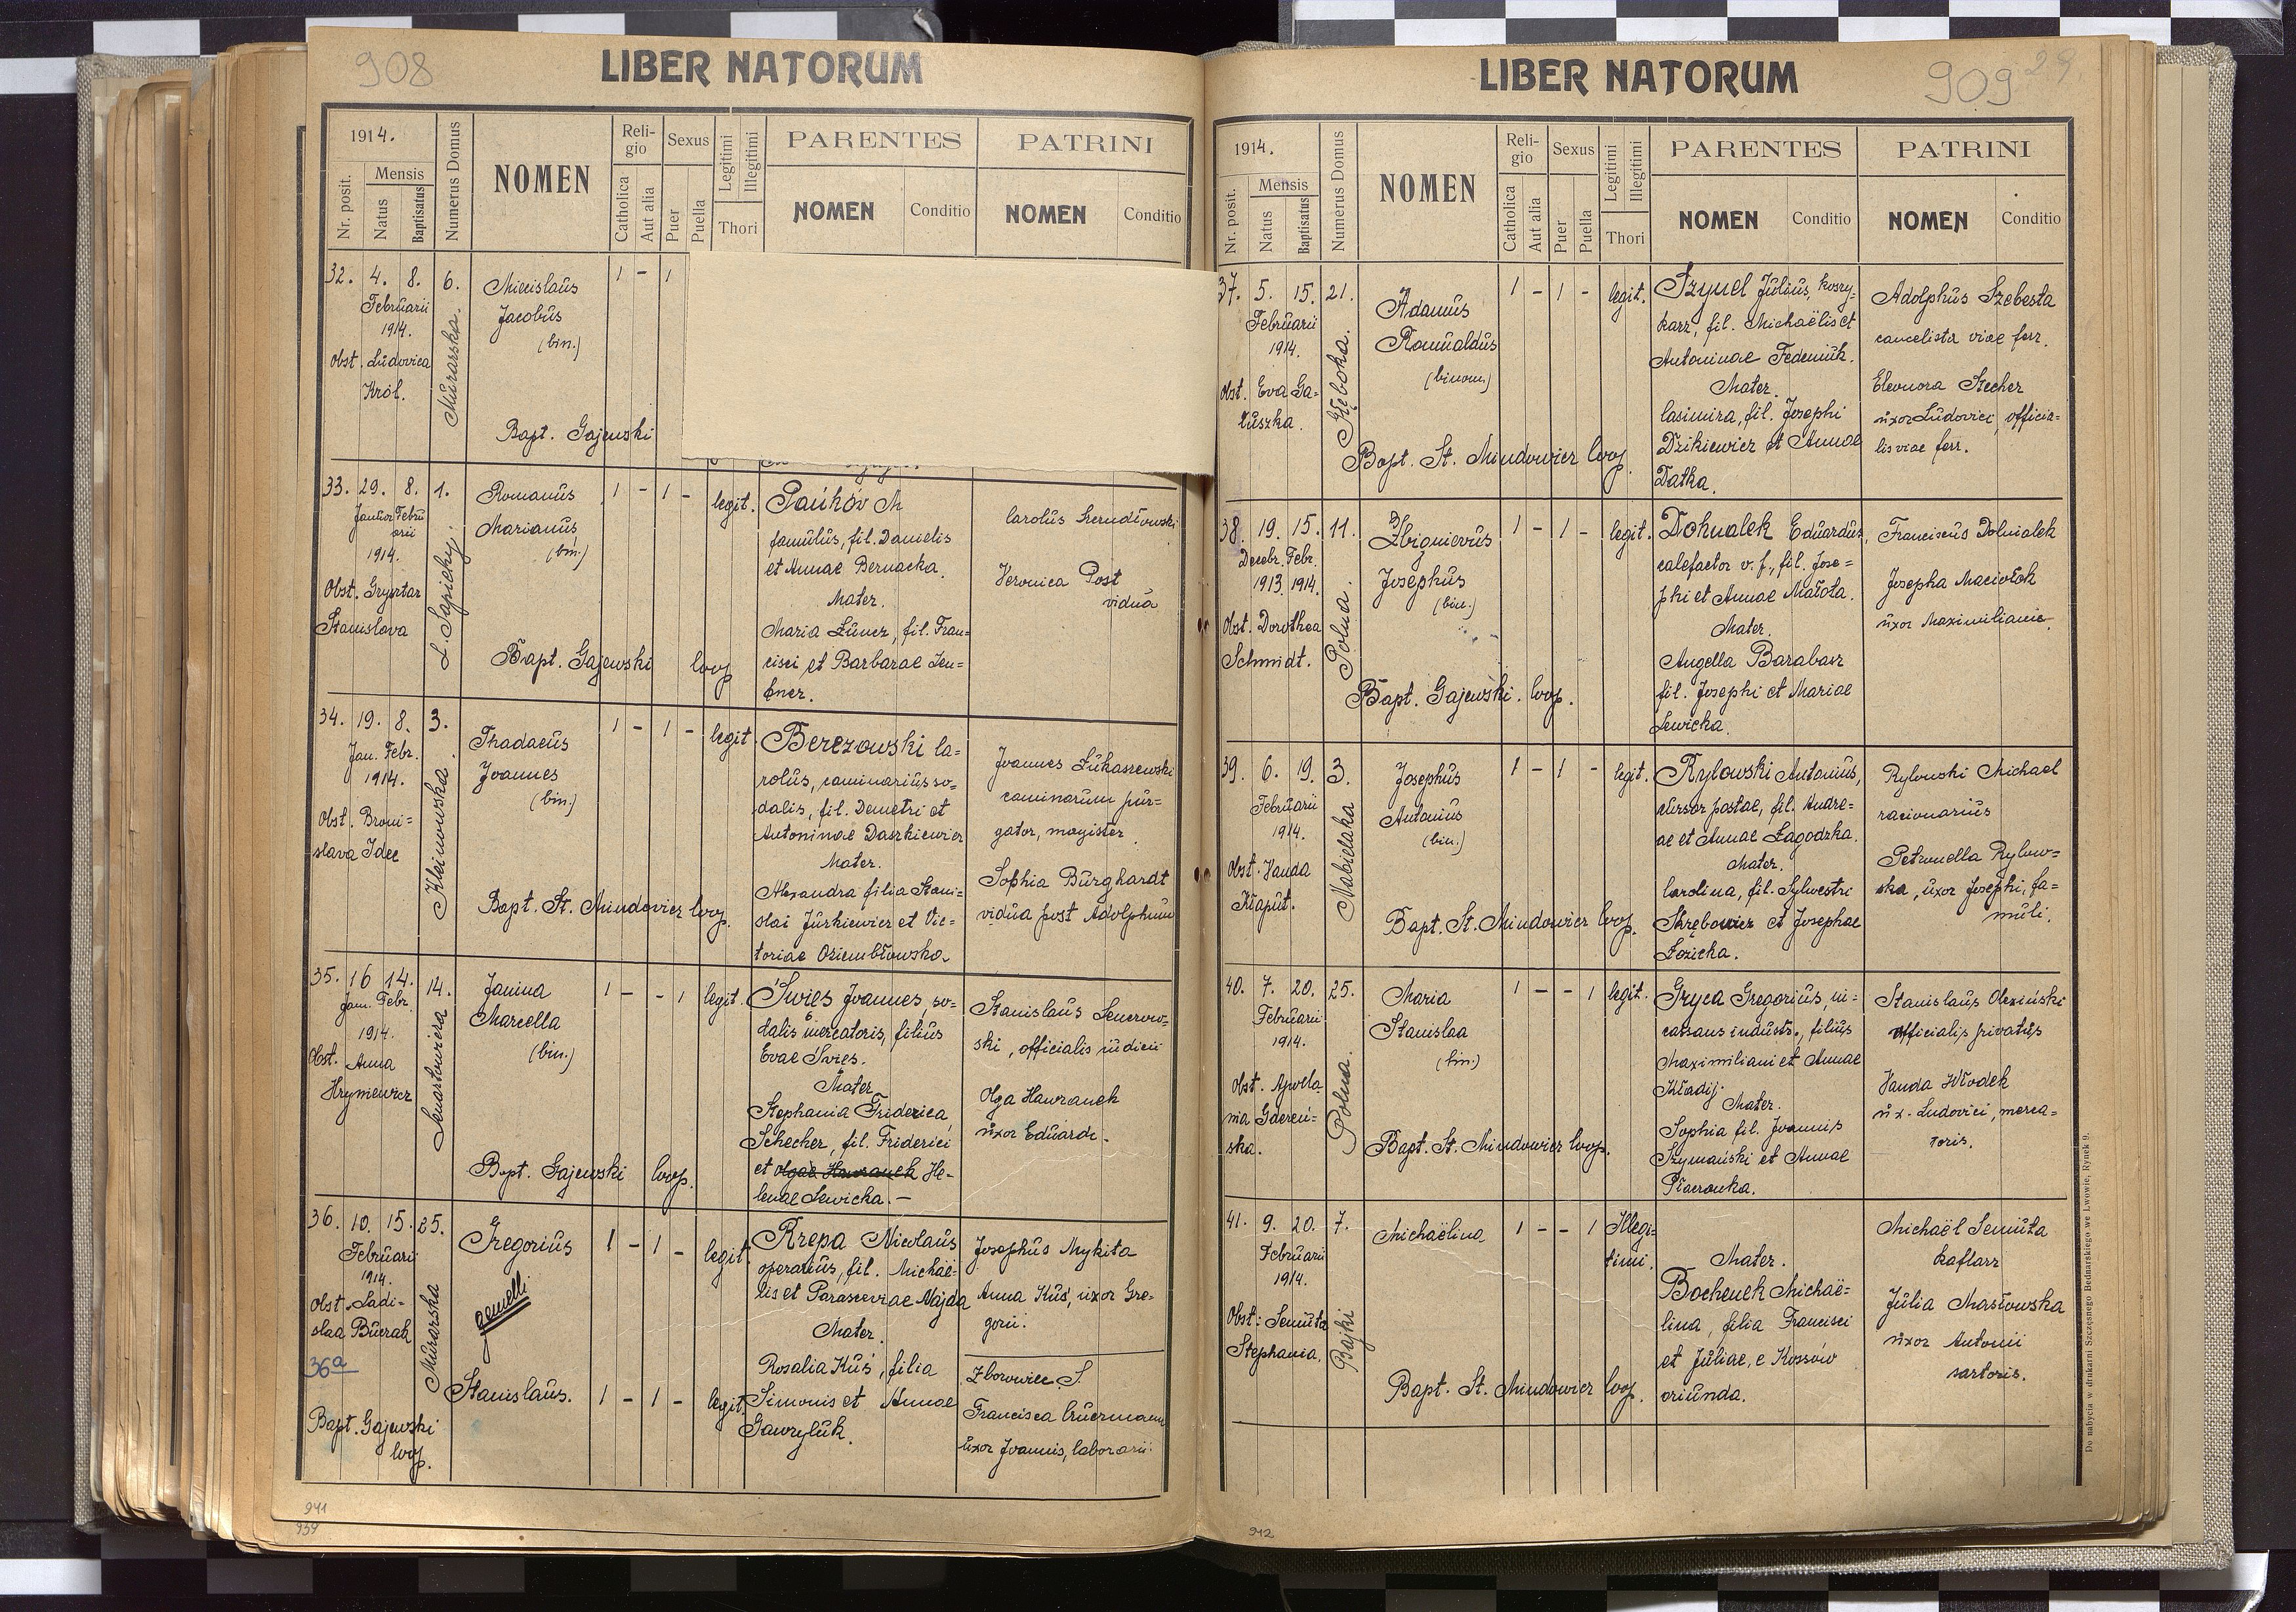 908
LIBER NATORUM
1914.
Nr. posit.
Mensis
Natus
Baptisatus
Numerus Domus
NOMEN
Religio
Catholica
Aut alia
Sexus
Puer
Puella
Legitimi
Illegitimi
Thori
PARENTES
NOMEN
Conditio
PATRINI
NOMEN
Conditio
32. 4. 8. 6.
Februarii
1914.
Obst. Ludovica
Król.
Murarska.
Miecislaus
Jacobus
(bin.)
Bapt. Gajewski
1 - 1
33. 29. 8. 1.
Januar Febru
arii
1914.
Obst. Gryrtar
Stanislava
L. Sapiehy.
Romanus
Marianus
(bin.)
Bapt. Gajewski Coop
1 - 1 - legit.
Pańków M
famulus, fil. Danielis
et Annae Bernacka.
Mater.
Maria Luner, fil. Fran=
cisci et Barbarae Len=
Carolus
Veronica Post
vidua
34. 19. 8. 3.
Jan. Febr.
1914.
Obst. Broni=
slava Idec
Kleinowska.
Thadaeus
Joannes
(bin.)
Bapt. St. Mindowicz Coop.
1 - 1 - legit.
Berezowski Ca=
rolus, caminarius so=
dalis, fil. Demetri et
Antoninae Daszkiewicz
Mater.
Alexandra filia Stani=
slai Jurkiewicz et Vic=
toriae Oziembłowska.
Joannes Łukaszewski
caminarum pur=
gator, magister
Sophia Burghardt
vidua post Adolphum
35. 16 14. 14.
Jan. Febr.
1914.
Obst. Anna
Hryniewicz
Lenartowicza
Janina
Marcella
(bin.)
Bapt. Gajewski Coop.
1 - - 1 legit.
Swies Joannes, so=
dalis mercatoris, filius
Evae Swies.
Mater
Stephania Friderica
Schecher, fil. Friderici
et Olgae Hawranek He=
lenae Lewicka. -
Stanislaus
ski, officialis iudicii
Olga Hawranek
uxor Eduardi.
36. 10. 15. 25.
Februarii
1914.
Obst. Ladi=
slaa Burak
Murarska
Gregorius
gemelli
1 - 1 - legit.
Krepa Nicolaus
operarius, fil. Michaë=
lis et Parasceviae Najda
Mater.
Rosalia Kuś, filia
Simonis et Annae
Gawryluk.
Josephus Mykita
Anna Kuś, uxor Gre=
gorii.
36a
Stanislaus.
1 - 1 - legit.
Zborowiec S.
Francisca
uxor Joannis, laborarii.
Bapt. Gajewski
Coop.
941
939
LIBER NATORUM
909
29
1914.
Nr. posit.
Mensis
Natus
Baptisatus
Numerus Domus
NOMEN
Religio
Catholica
Aut alia
Sexus
Puer
Puella
Legitimi
Illegitimi
Thori
PARENTES
NOMEN
Conditio
PATRINI
NOMEN
Conditio
37. 5. 15. 21.
Februarii
1914.
Obst. Eva Ga=
łuszka.
Głęboka.
Adamus
Romualdus
(binom.)
Bapt. St. Mindowicz Coop.
1 - 1 - legit.
Szynel Julius, koszy=
karz, fil. Michaëlis et
Antoninae Fedeniuk.
Mater.
Casimira, fil. Josephi
Dzikiewicz et Annae
Datka.
Adolphus Szebesta
cancelista viae ferr.
Eleonora Stecher
uxor Ludovici, officia=
lis viae ferr.
38. 19. 15. 11.
Decebr. Febr.
1913. 1914.
Obst. Dorothea
Schmidt.
Polna.
Zbignievus
Josephus
(bin.)
Bapt. Gajewski. Coop.
1 - 1 - legit.
Dohnalek Eduardus,
calefactor v. f., fil. Jose=
phi et Annae Małota.
Mater.
Angella Barabasz
fil. Josephi et Mariae
Lewicka.
Franciscus Dohnalek
Josepha Maciołok
uxor Maximiliani
39. 6. 19. 3.
Februarii
1914.
Obst. Vanda
Kłaput.
Nabielaka
Josephus
Antonius
(bin.)
Bapt. St. Mindowicz Coop.
1 - 1 - legit.
Rylowski Antonius,
cursor postae, fil. Andre=
ae et Annae Łagodzka.
Mater.
Carolina, fil. Sylvestri
Skrębowicz et Josephae
Łozicka.
Rylowski Michael
racionarius
Petronella Rylow=
ska, uxor Josephi, fa=
muli.
40. 7. 20. 25.
Februarii
1914.
Obst. Apola
nia Gdereń=
ska.
Polna.
Maria
Stanislaa
(bin.)
Bapt. St. Mindowicz Coop.
1 - - 1 legit.
Gryca Gregorius, in=
cassans industr., filius
Maximiliani et Annae
Kładij.
Mater.
Sophia fil. Joannis
Szymański et Annae
Stanislaus Olexiński
officialis privatus
Vanda Włodek
ux. Ludovici, merca=
toris.
41. 9. 20. 7.
Februarii
1914.
Obst: Semuta
Stephania.
Bajki
Michaëlina
Bapt. St. Mindowicz Coop.
1 - - 1 Illegi=
timi.
Mater.
Bochenek Michaë=
lina, filia Francisci
et Juliae, e Kossów
oriunda.
Michaël Semuta
kaflarz
Julia Masłowska
uxor Antonii
sartoris.
Do nabycia w drukarni Szczęsnego Bednarskiego we Lwowie, Rynek 9.
942